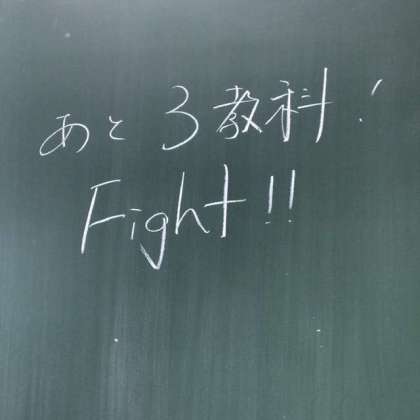 あと 3教科!
Fight!!